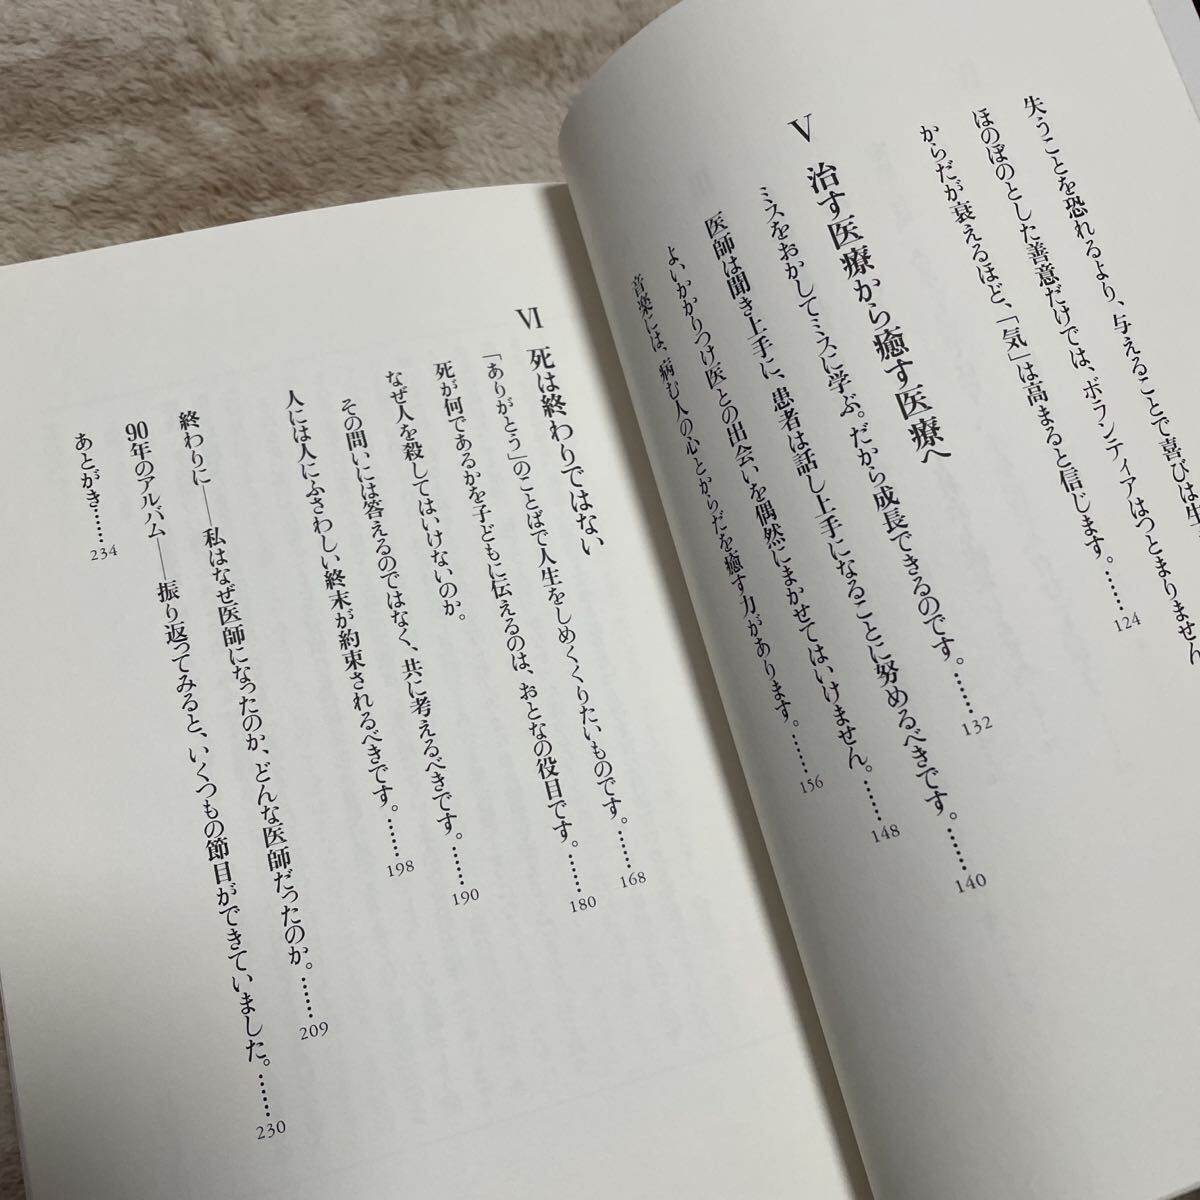 失うことを恐れるより、与えることで喜びは生
ほのぼのとした善意だけでは、ボランティアはつとまりません
からだが衰えるほど、「気」は高まると信じます。……124
Ⅴ 治す医療から癒す医療へ
ミスをおかしてミスに学ぶ。だから成長できるのです。……132
医師は聞き上手に、患者は話し上手になることに努めるべきです。……140
よいかかりつけ医との出会いを偶然にまかせてはいけません。……148
音楽には、病む人の心とからだを癒す力があります。……156
Ⅵ 死は終わりではない
「ありがとう」のことばで人生をしめくくりたいものです。……168
死が何であるかを子どもに伝えるのは、おとなの役目です。……180
なぜ人を殺してはいけないのか。
その問いには答えるのではなく、共に考えるべきです。……190
人には人にふさわしい終末が約束されるべきです。……198
終わりに──私はなぜ医師になったのか、どんな医師だったのか。……209
90年のアルバム──振り返ってみると、いくつもの節目ができていました。……230
あとがき……234